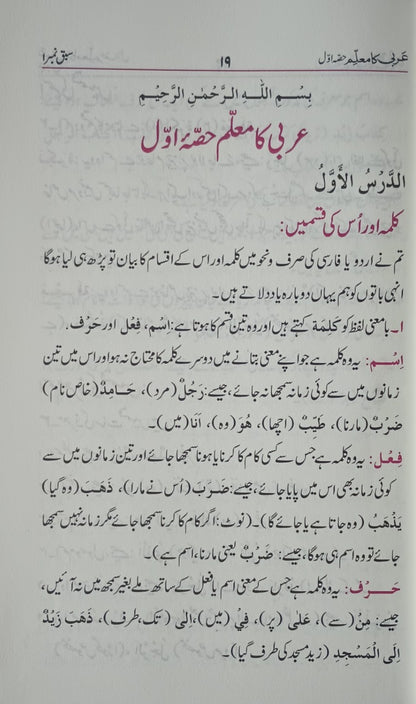 عربی کا معلّم حصّہ اوّل ۱۹ سبق نمبر ۱
بِسْمِ اللّٰهِ الرَّحْمٰنِ الرَّحِيْمِ
عربی کا معلّم حصّۂ اوّل
الدَّرْسُ الْأَوَّلُ
کلمہ اور اُس کی قسمیں:
تم نے اردو یا فارسی کی صرف ونحو میں کلمہ اور اس کے اقسام کا بیان تو پڑھ ہی لیا ہوگا
انہی باتوں کو ہم یہاں دوبارہ یاد دلاتے ہیں۔
۱۔ با معنی لفظ کو کَلِمَة کہتے ہیں اور وہ تین قسم کا ہوتا ہے: اِسْم، فِعْل اور حَرْف۔
اِسْم: یہ وہ کلمہ ہے جو اپنے معنی بتانے میں دوسرے کلمہ کا محتاج نہ ہو اور اس میں تین
زمانوں میں سے کوئی زمانہ سمجھا نہ جائے، جیسے: رَجُلٌ (مرد)، حَامِدٌ (خاص نام)
ضَرْبٌ (مارنا)، طَيِّبٌ (اچھا)، هُوَ (وہ)، اَنَا (میں)۔
فِعْل: یہ وہ کلمہ ہے جس سے کسی کام کا کرنا یا ہونا سمجھا جائے اور تین زمانوں میں سے
کوئی زمانہ بھی اس میں پایا جائے، جیسے: ضَرَبَ (اُس نے مارا)، ذَهَبَ (وہ گیا)
يَذْهَبُ (وہ جاتا ہے یا جائے گا)۔ (نوٹ: اگر کام کا کرنا سمجھا جائے مگر زمانہ نہیں سمجھا
جائے تو وہ اسم ہی ہوگا، جیسے: ضَرْبٌ یعنی مارنا، اسم ہے)۔
حَرْف: یہ وہ کلمہ ہے جس کے معنی اسم یا فعل کے ساتھ ملے بغیر سمجھ میں نہ آئیں،
جیسے: مِنْ (سے)، عَلٰی (پر)، فِيْ (میں)، اِلٰی (تک، طرف)، ذَهَبَ زَيْدٌ
اِلَی الْمَسْجِدِ (زید مسجد کی طرف گیا)۔